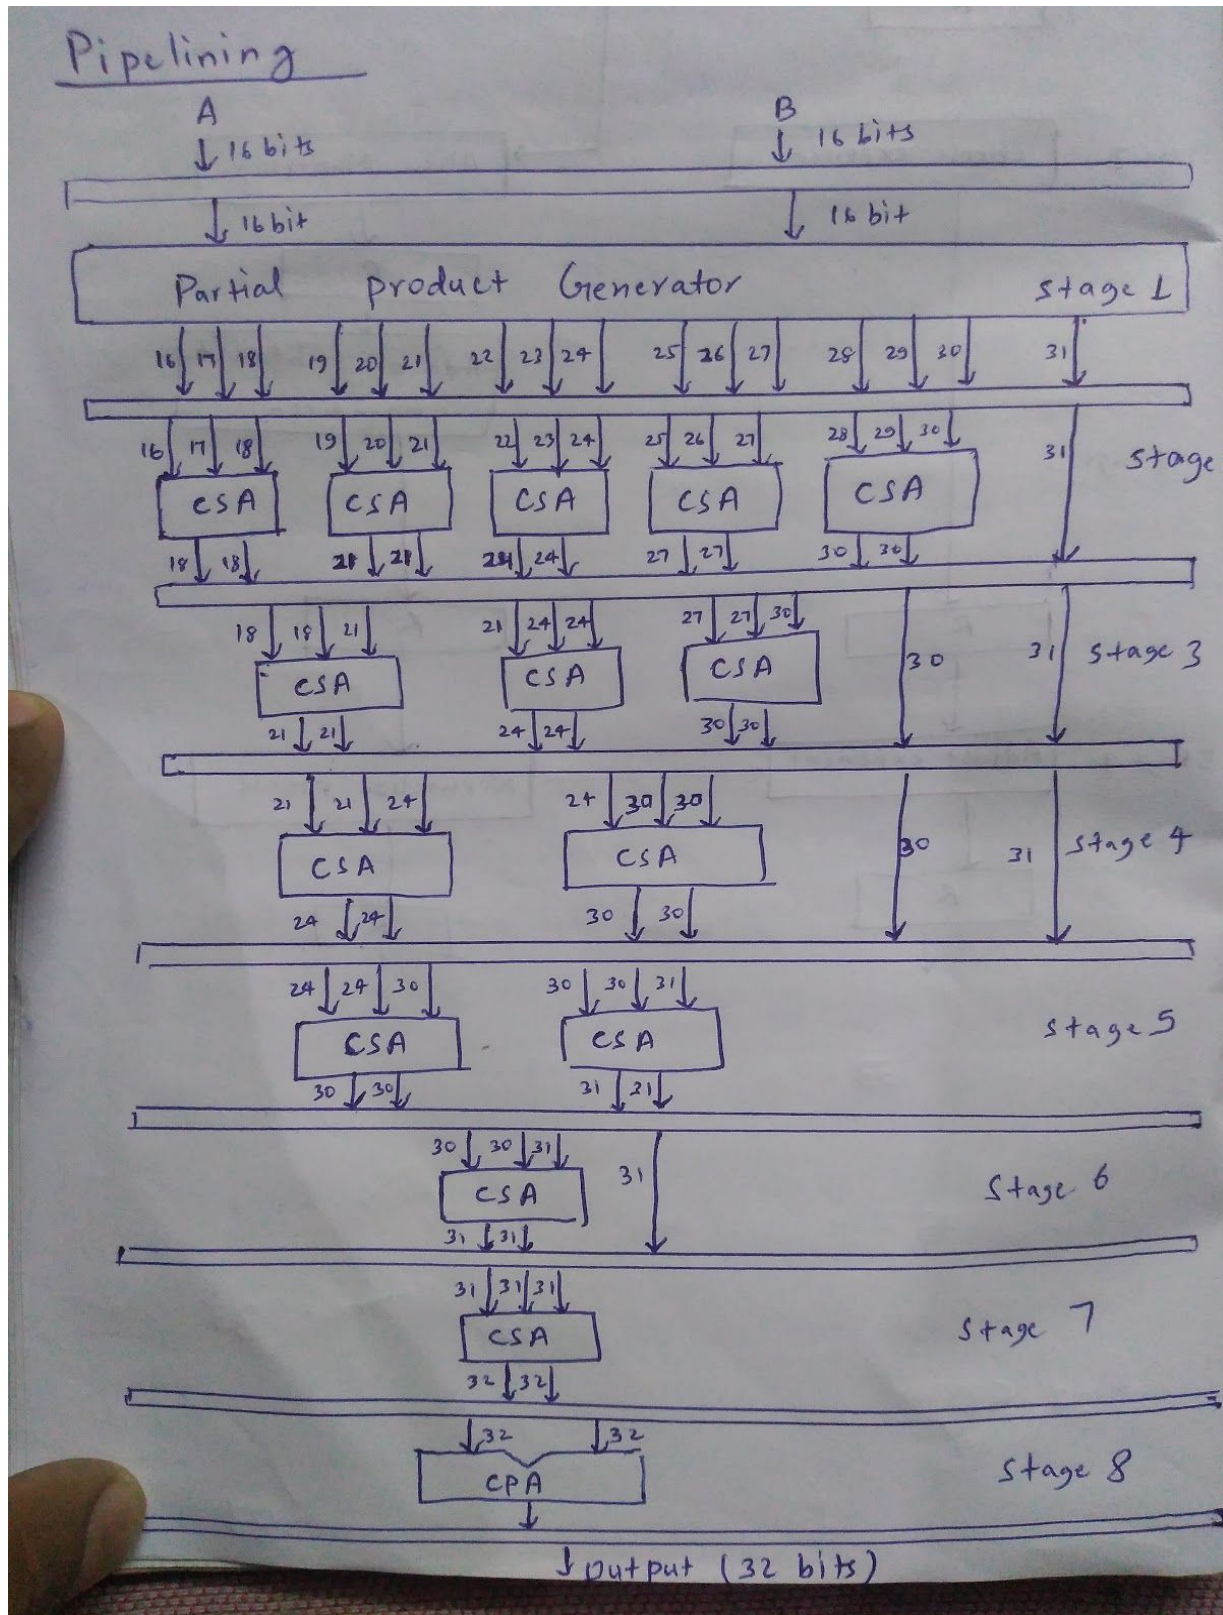 Pipelining
A B
16 bits 16 bits
16 bit 16 bit
Partial product Generator stage 1
16 17 18 19 20 21 22 23 24 25 26 27 28 29 30 31
16 17 18 19 20 21 22 23 24 25 26 27 28 29 30 31 stage
CSA CSA CSA CSA CSA
18 18 21 21 24 24 27 27 30 30
18 18 21 21 24 24 27 27 30 30 31 stage 3
CSA CSA CSA
21 21 24 24 30 30
21 21 24 24 30 30 30 31 stage 4
CSA CSA
24 24 30 30
24 24 30 30 30 31 stage 5
CSA CSA
30 30 31 31
30 30 31 31 stage 6
CSA
31 31
31 31 31 stage 7
CSA
32 32
32 32 stage 8
CPA
output (32 bits)